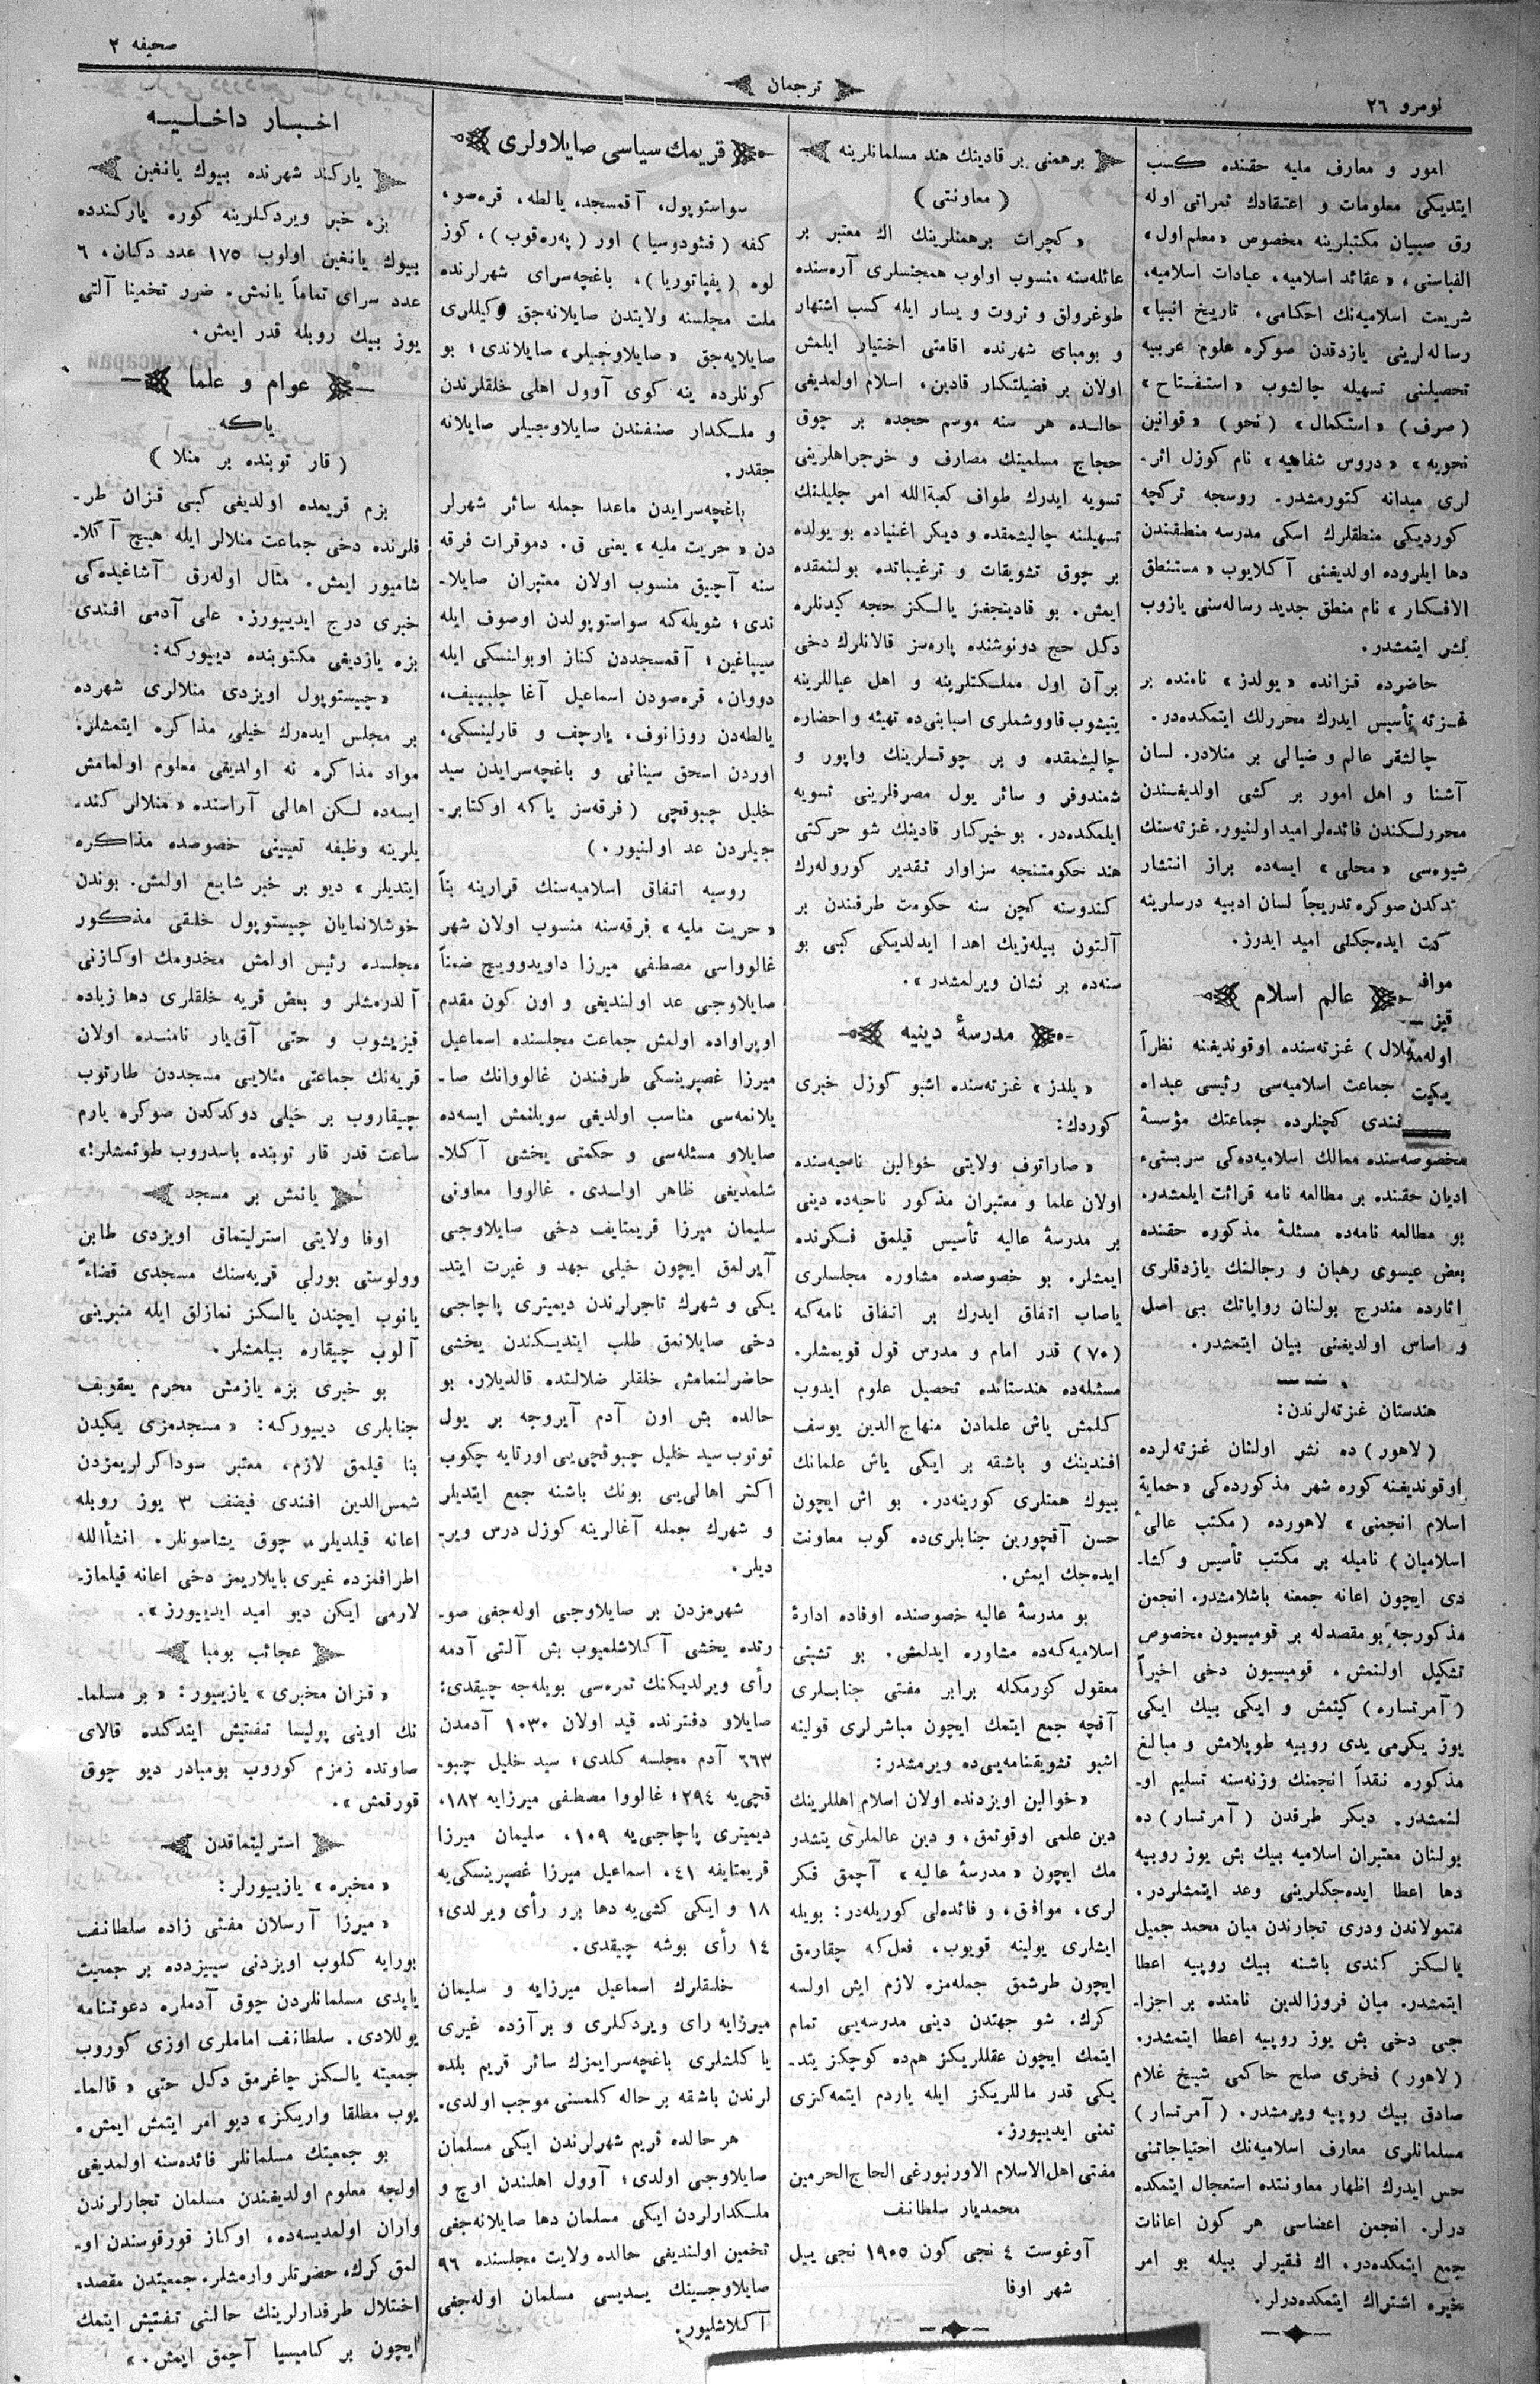 صحیفه ٢
ترجمان
نومرو ٢٦
امور و معارف ملیه حقنده کسب
ایتدیکی معلومات و اعتقادك ثمراتی اوله
رق صبیان مکتبلرینه مخصوص «معلم اول»
الفباسنی، «عقائد اسلامیه، عبادات اسلامیه،
شریعت اسلامیه‌نك احکامی، تاریخ انبیا»
رساله‌لرینی یازدقدن صوکره علوم عربیه
تحصیلنی تسهیله چالشوب «استفتاح»
(صرف) «استکمال» (نحو) «قوانین
نحویه» «دروس شفاهیه» نام کوزل اثر-
لری میدانه کتورمشدر. روسجه ترکچه
کوردیکی منطقلرك اسکی مدرسه منطقندن
دها ایلروده اولدیغنی آکلایوب «مستنطق
الافکار» نام منطق جدید رساله‌سنی یازوب
نشر ایتمشدر.
حاضرده قزانده «یولدز» نامنده بر
غزته تأسیس ایدرك محررلك ایتمکده‌در.
چالشقر عالم و ضیالی بر منلادر. لسان
آشنا و اهل امور بر کشی اولدیغندن
محررلکندن فائده‌لر امید اولنیور. غزته‌سنك
شیوه‌سی «محلی» ایسه‌ده براز انتشار
تدکدن صوکره تدریجاً لسان ادبیه درسلرینه
کت ایده‌جکنی امید ایدرز.
موافه
عالم اسلام
قیز
اوله‌مه
هلال) غزته‌سنده اوقوندیغنه نظراً
یکیت
جماعت اسلامیه‌سی رئیسی عبداه
فندی کچنلرده جماعتك مؤسسۀ
مخصوصه‌سنده ممالك اسلامیه‌ده‌کی سربستیء
ادیان حقنده بر مطالعه نامه قرائت ایلمشدر.
بو مطالعه نامه‌ده مسئلۀ مذکوره حقنده
بعض عیسوی رهبان و رجالنك یازدقلری
اثارده مندرج بولنان روایاتك بی اصل
و اساس اولدیغنی بیان ایتمشدر.
هندستان غزته‌لرندن:
(لاهور) ده نشر اولنان غزته‌لرده
اوقوندیغنه کوره شهر مذکورده‌کی «حمایة
اسلام انجمنی» لاهورده (مکتب عالیٔ
اسلامیان) نامیله بر مکتب تأسیس و کشا-
دی ایچون اعانه جمعنه باشلامشدر. انجمن
مذکورجه بو مقصدله بر قومیسیون مخصوص
تشکیل اولنمش، قومیسیون دخی اخیراً
(آمرتساره) کیتمش و ایکی بیك ایکی
یوز یکرمی یدی روپیه طوپلامش و مبالغ
مذکوره نقداً انجمنك وزنه‌سنه تسلیم او-
لنمشدر. دیکر طرفدن (آمرتسار) ده
بولنان معتبران اسلامیه بیك بش یوز روپیه
دها اعطا ایده‌جکلرینی وعد ایتمشلردر.
متمولاندن ودری تجارندن میان محمد جمیل
یالکز کندی باشنه بیك روپیه اعطا
ایتمشدر. میان فروزالدین نامنده بر اجزا-
جی دخی بش یوز روپیه اعطا ایتمشدر.
(لاهور) فخری صلح حاکمی شیخ غلام
صادق بیك روپیه ویرمشدر. (آمرتسار)
مسلمانلری معارف اسلامیه‌نك احتیاجاتنی
حس ایدرك اظهار معاونتده استعجال ایتمکده
درلر. انجمن اعضاسی هر کون اعانات
جمع ایتمکده‌در، اك فقیرلر بیله بو امر
خیره اشتراك ایتمکده‌درلر.
برهمنی بر قادینك هند مسلمانلرینه
(معاونتی)
«کچرات برهمنلرینك اك معتبر بر
عائله‌سنه منسوب اولوب همجنسلری آره‌سنده
طوغرولق و ثروت و یسار ایله کسب اشتهار
و بومبای شهرنده اقامتی اختیار ایلمش
اولان بر فضیلتکار قادین، اسلام اولمدیغی
حالده هر سنه موسم حجده بر چوق
حجاج مسلمینك مصارف و خرجراهلرینی
تسویه ایدرك طواف کعبةالله امر جلیلنك
تسهیلنه چالیشمقده و دیکر اغنیاده بو یولده
بر چوق تشویقات و ترغیباتده بولنمقده
ایمش. بو قادینجغز یالکز حجه کیدنلره
دکل حج دونوشنده پاره‌سز قالانلرك دخی
بر آن اول مملکتلرینه و اهل عیاللرینه
یتیشوب قاووشملری اسبابنی‌ده تهیئه و احضاره
چالیشمقده و بر چوقلرینك واپور و
شمندوفر و سائر یول مصرفلرینی تسویه
ایلمکده‌در. بو خیرکار قادینك شو حرکتی
هند حکومتنجه سزاوار تقدیر کوروله‌رك
کندوسنه کچن سنه حکومت طرفندن بر
آلتون بیله‌زیك اهدا ایدلدیکی کبی بو
سنه‌ده بر نشان ویرلمشدر».
مدرسۀ دینیه
«یلدز» غزته‌سنده اشبو کوزل خبری
کوردك:
«صاراتوف ولایتی خوالین ناحیه‌سنده
اولان علما و معتبران مذکور ناحیه‌ده دینی
بر مدرسۀ عالیه تأسیس قیلمق فکرنده
ایمشلر. بو خصوصده مشاوره مجلسلری
یاصاب اتفاق ایدرك بر اتفاق نامه‌که
(٧٠) قدر امام و مدرس قول قویمشلر.
مسئله‌ده هندستانده تحصیل علوم ایدوب
کلمش یاش علمادن منهاج‌الدین یوسف
افندینك و باشقه بر ایکی یاش علمانك
بیوك همتلری کورینه‌در. بو اش ایچون
حسن آقچورین جنابلری‌ده کوب معاونت
ایده‌جك ایمش.
بو مدرسۀ عالیه خصوصنده اوفاده ادارۀ
اسلامیه‌که‌ده مشاوره ایدلمش. بو تشبثی
معقول کورمکله برابر مفتی جنابلری
آقچه جمع ایتمك ایچون مباشرلری قولینه
اشبو تشویقنامه‌یی‌ده ویرمشدر:
«خوالین اویزدنده اولان اسلام اهللرینك
دین علمی اوقوتمق، و دین عالملری یتشدر
مك ایچون «مدرسۀ عالیه» آچمق فکر
لری، موافق، و فائده‌لی کوریله‌در: بویله
ایشلری یولینه قویوب، فعل‌که چقارمق
ایچون طرشمق جمله‌مزه لازم ایش اولسه
کرك. شو جهتدن دینی مدرسه‌یی تمام
ایتمك ایچون عقللریکز هم‌ده کوچکز یتد-
یکی قدر ماللریکز ایله یاردم ایتمه‌کزی
تمنی ایدییورز.
مفتی اهل‌الاسلام الاورنبورغی الحاج الحرمین
محمدیار سلطانف
آوغوست ٤ نجی کون ١٩٠٥ نجی ییل
شهر اوفا
قریمك سیاسی صایلاولری
سواستوپول، آقمسجد، یالطه، قره‌صو،
کفه (فئودوسیا) اور (په‌ره‌قوب)، کوز
لوه (یفپاتوریا)، باغچه‌سرای شهرلرنده
ملت مجلسنه ولایتدن صایلانه‌جق وکیللری
صایلایه‌جق «صایلاوجیلر» صایلاندی؛ بو
کونلرده ینه کوی آوول اهلی خلقلرندن
و ملکدار صنفندن صایلاوجیلر صایلانه
جقدر.
باغچه‌سرایدن ماعدا جمله سائر شهرلر
دن «حریت ملیه» یعنی ق. دموقرات فرقه
سنه آچیق منسوب اولان معتبران صایلا-
ندی؛ شویله‌که سواستوپولدن اوصوف ایله
سیپاغین؛ آقمسجددن کناز اوبولنسکی ایله
دووان، قره‌صودن اسماعیل آغا چلبییف،
یالطه‌دن روزانوف، یارچف و قارلینسکی،
اوردن اسحق سینانی و باغچه‌سرایدن سید
خلیل چبوقچی (فرقه‌سز یاکه اوکتابر-
جیلردن عد اولنیور.)
روسیه اتفاق اسلامیه‌سنك قرارینه بناً
«حریت ملیه» فرقه‌سنه منسوب اولان شهر
غالوواسی مصطفی میرزا داویدوویچ ضمناً
صایلاوجی عد اولندیغی و اون کون مقدم
اوپراواده اولمش جماعت مجلسنده اسماعیل
میرزا غصپرینسکی طرفندن غالووانك صا-
یلانمه‌سی مناسب اولدیغی سویلنمش ایسه‌ده
صایلاو مسئله‌سی و حکمتی یخشی آکلا-
شلمدیغی ظاهر اولدی. غالووا معاونی
سلیمان میرزا قریمتایف دخی صایلاوجی
آیرلمق ایچون خیلی جهد و غیرت ایتد-
یکی و شهرك تاجرلرندن دیمیتری پاچاجی
دخی صایلانمق طلب ایتدیکندن یخشی
حاضرلنمامش خلقلر ضلالتده قالدیلار. بو
حالده بش اون آدم آیروجه بر یول
توتوب سید خلیل چبوقچی‌یی اورتایه چکوب
اکثر اهالی‌یی بونك باشنه جمع ایتدیلر
و شهرك جمله آغالرینه کوزل درس ویر-
دیلر.
شهرمزدن بر صایلاوجی اوله‌جغی صو-
رتده یخشی آکلاشلمیوب بش آلتی آدمه
رأی ویرلدیکنك ثمره‌سی بویله‌جه چیقدی:
صایلاو دفترنده قید اولان ١٠٣٠ آدمدن
٦٦٣ آدم مجلسه کلدی؛ سید خلیل چبو-
قچی‌یه ٢٩٤؛ غالووا مصطفی میرزایه ١٨٢،
دیمیتری پاچاجی‌یه ١٠٩، سلیمان میرزا
قریمتایفه ٤١، اسماعیل میرزا غصپرینسکی‌یه
١٨ و ایکی کشی‌یه دها برر رأی ویرلدی؛
١٤ رأی بوشه چیقدی.
خلقلرك اسماعیل میرزایه و سلیمان
میرزایه رای ویردکلری و بر آزده غیری
یاکلشلری باغچه‌سرایمزك سائر قریم بلده
لرندن باشقه بر حاله کلمسنی موجب اولدی.
هر حالده قریم شهرلرندن ایکی مسلمان
صایلاوجی اولدی؛ آوول اهلندن اوچ و
ملکدارلردن ایکی مسلمان دها صایلانه‌جغی
تخمین اولندیغی حالده ولایت مجلسنده ٩٦
صایلاوجینك یدیسی مسلمان اوله‌جغی
آکلاشلیور.
اخبار داخلیه
یارکند شهرنده بیوك یانغین
بزه خبر ویردکلرینه کوره یارکندده
بیوك یانغین اولوب ١٧٥ عدد دکان، ٦
عدد سرای تماماً یانمش. ضرر تخمینا آلتی
یوز بیك روبله قدر ایمش.
عوام و علما
یاکه
(قار توبنده بر منلا)
بزم قریمده اولدیغی کبی قزان طر-
فلرنده دخی جماعت منلالر ایله هیچ آکلا-
شامیور ایمش. مثال اوله‌رق آشاغیده‌کی
خبری درج ایدییورز. علی آدمی افندی
بزه یازدیغی مکتوبنده دییورکه:
«چیستوپول اویزدی منلالری شهرده
بر مجلس ایده‌رك خیلی مذاکره ایتمشلر.
مواد مذاکره نه اولدیغی معلوم اولمامش
ایسه‌ده لکن اهالی آراسنده «منلالر کند-
یلرینه وظیفه تعیینی خصوصده مذاکره
ایتدیلر» دیو بر خبر شایع اولمش. بوندن
خوشلانمایان چیستوپول خلقی مذکور
مجلسده رئیس اولمش مخدومك اوکازنی
آلدرمشلر و بعض قریه خلقلری دها زیاده
قیزیشوب و حتی آق‌یار نامنده اولان
قریه‌نك جماعتی منلایی مسجددن طارتوب
چیقاروب بر خیلی دوکدکدن صوکره یارم
ساعت قدر قار توبنده باسدروب طوتمشلر!»
یانمش بر مسجد
اوفا ولایتی استرلیتماق اویزدی طابن
وولوستی بورلی قریه‌سنك مسجدی قضاءً
یانوب ایچندن یالکز نمازلق ایله منبرینی
آلوب چیقاره بیلمشلر.
بو خبری بزه یازمش محرم یعقوبف
جنابلری دییورکه: «مسجدمزی یکیدن
بنا قیلمق لازم، معتبر سوداکرلریمزدن
شمس‌الدین افندی فیضف ٣ یوز روبله
اعانه قیلدیلر، چوق یشاسونلر. انشأالله
اطرافمزده غیری بایلاریمز دخی اعانه قیلماز-
لارمی ایکن دیو امید ایدییورز».
عجائب بومبا
«قزان مخبری» یازییور: «بر مسلما-
نك اوینی پولیسا تفتیش ایتدکده قالای
صاوتده زمزم کوروب بومبادر دیو چوق
قورقمش».
استرلیتماقدن
«مخبره» یازییورلر:
«میرزا آرسلان مفتی زاده سلطانف
بورایه کلوب اویزدنی سییزدده بر جمعیت
یاپدی مسلمانلردن چوق آدملره دعوتنامه
یوللادی. سلطانف اماملری اوزی کوروب
جمعیته یالکز چاغرمق دکل حتی «قالما-
یوب مطلقا واریکز» دیو امر ایتمش ایمش.
بو جمعیتك مسلمانلر فائده‌سنه اولمدیغی
اولجه معلوم اولدیغندن مسلمان تجارلرندن
واران اولمدیسه‌ده، اوکاز قورقوسندن او-
لمق کرك، حضرتلر وارمشلر. جمعیتدن مقصد،
اختلال طرفدارلرینك حالنی تفتیش ایتمك
ایچون بر کامیسیا آچمق ایمش.»